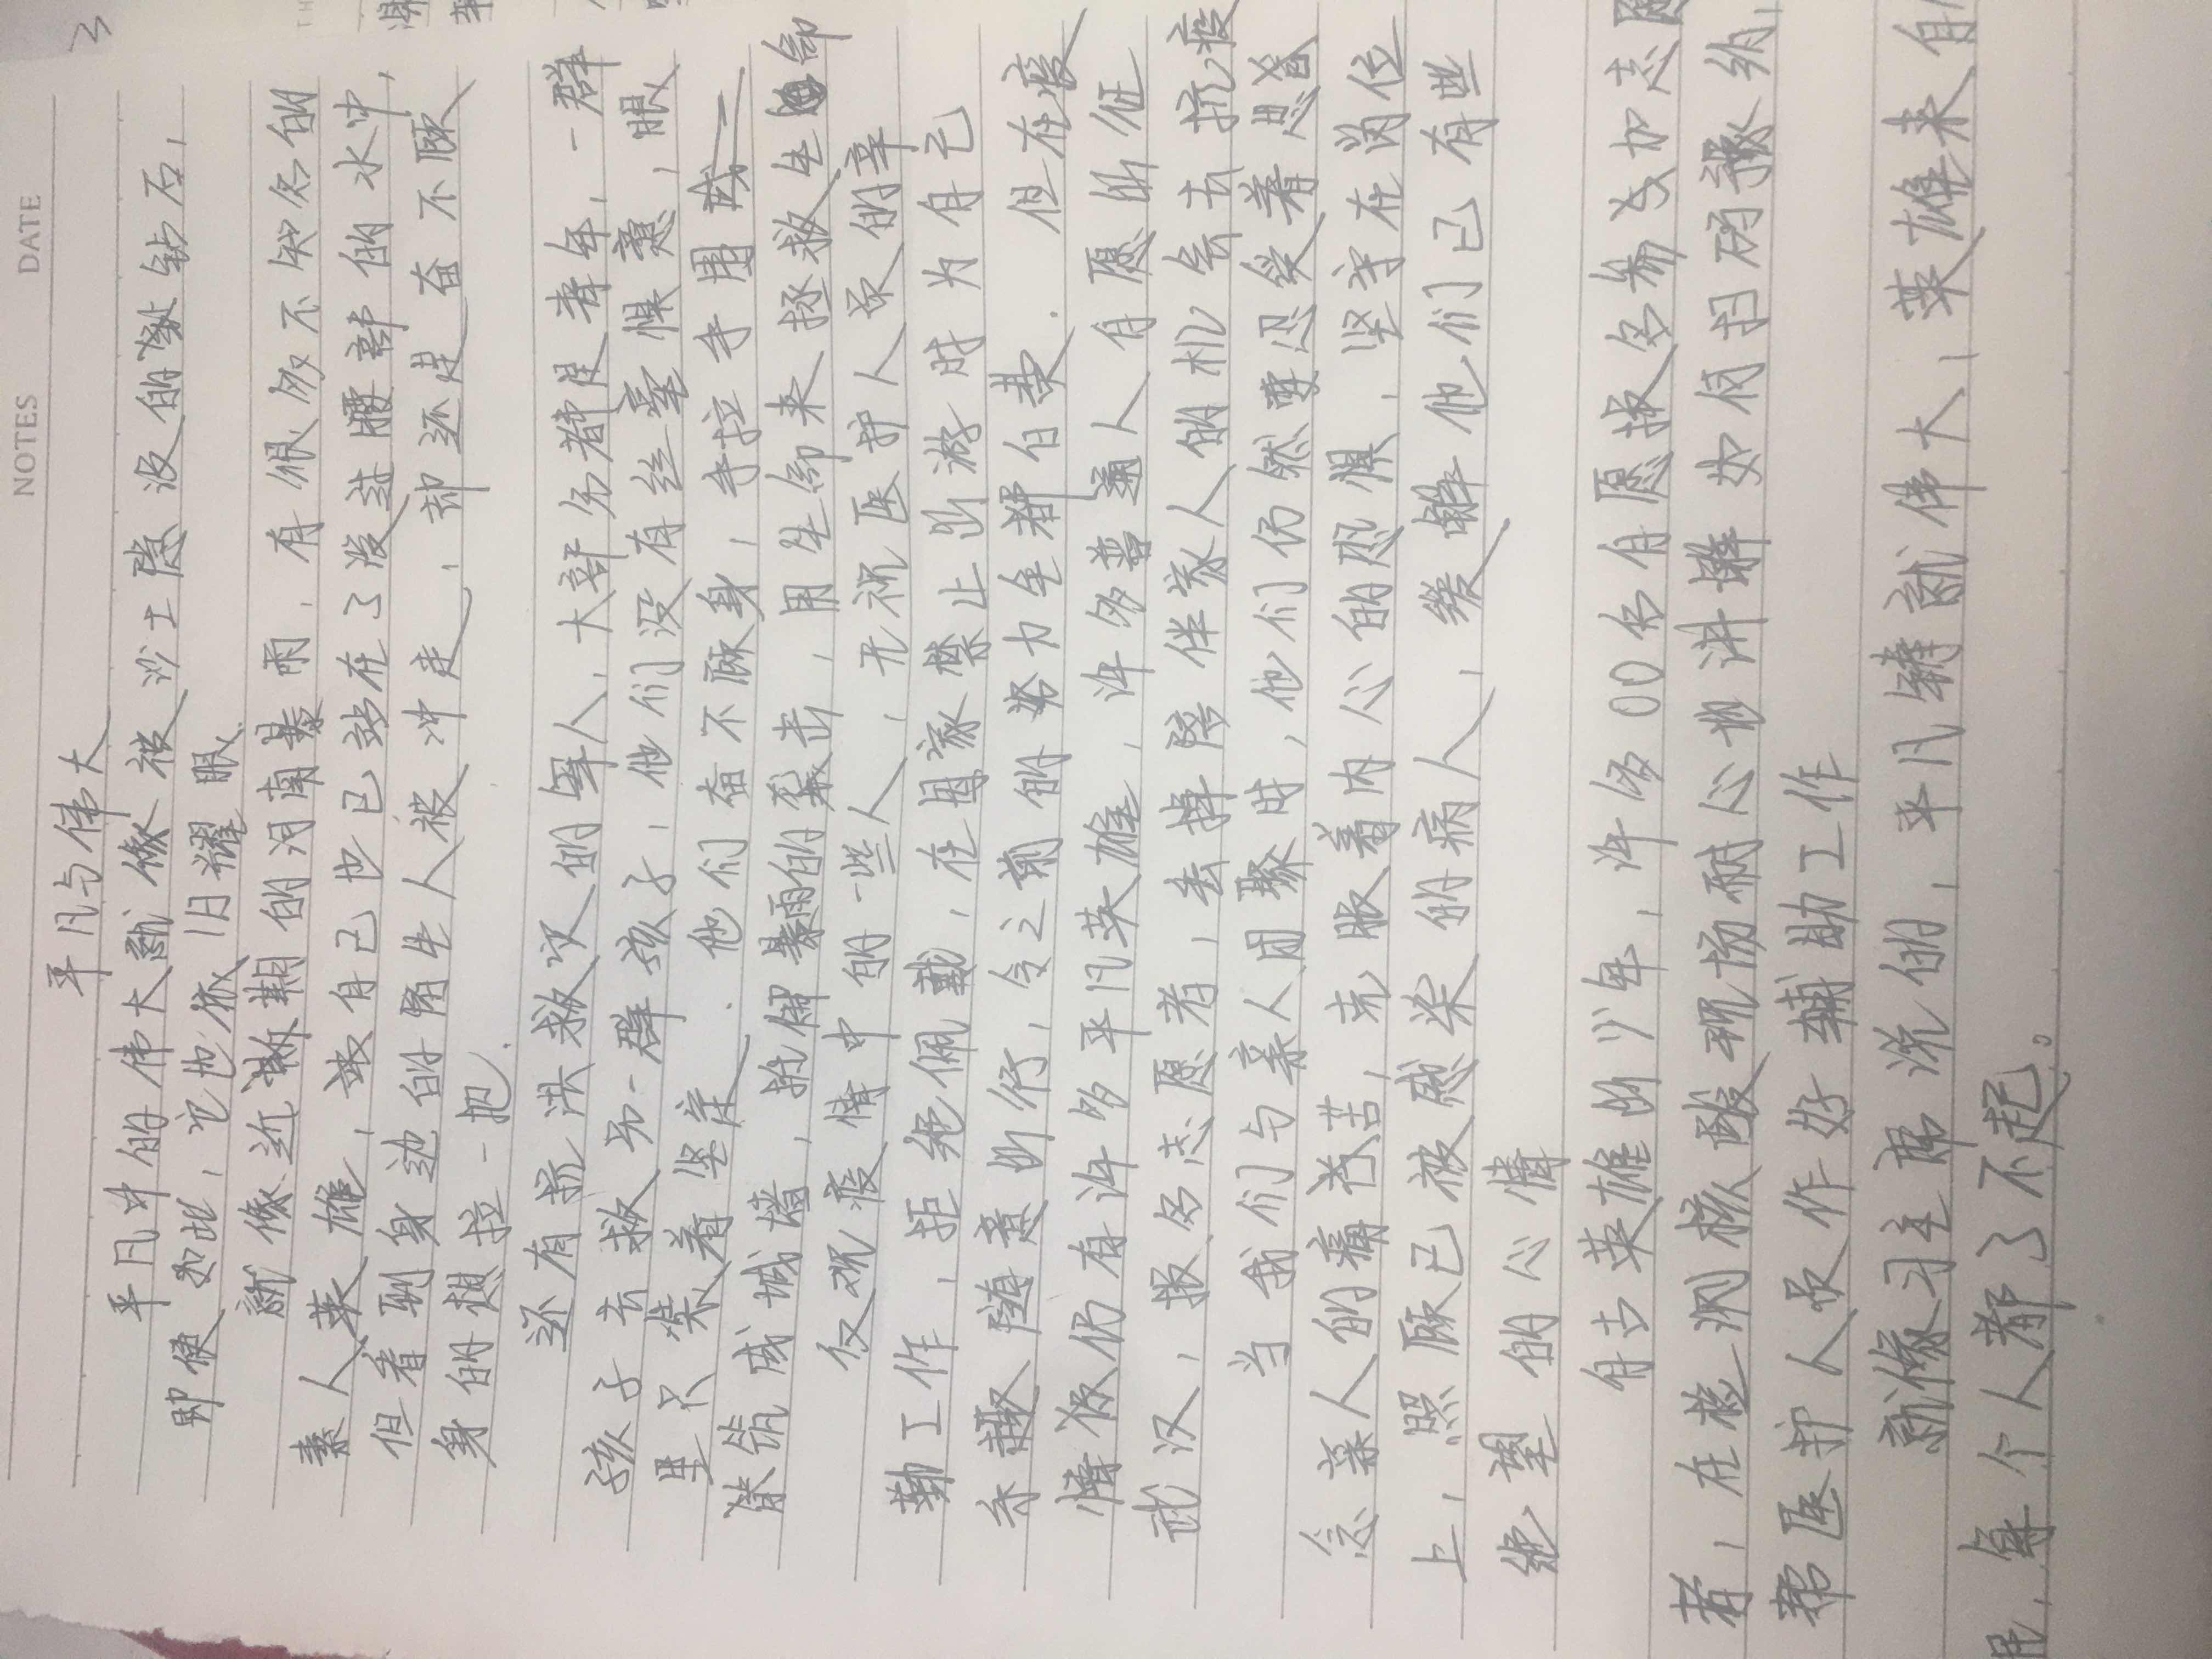 NOTES DATE
3
平凡与伟大
平凡中的伟大就像被沙土隐没的璨钻石,
即使如此,它也依旧耀眼
就像近期的河南暴雨,有很多不知名的
素人英雄,最自己也已站在了没过腰部的水中,
但看到身边的陌生人被冲走,却还是奋不顾
身的想拉一把.
还有抗洪救灾的军人,大部分都是青年,一群
孩子去救另一群孩子,他们没有丝毫惧意,眼
里只装着坚定.他们奋不顾身,手拉手用
筑成城墙,抵御暴雨的袭击,用生命来拯救生命
仅观疫情中的一些人,无视医护人员的辛
勤工作,拒绝佩戴,在国家禁止出游时为自己
乐趣随意出行,令之前的努力全都白费.但在疫
情后仍有许多平凡英雄,许多普通人自愿出征
武汉,报名志愿者,丢掉陪伴家人的机会去抗疫
当我们与亲人团聚时,他们仍然要忍受着思
念亲人的痛苦,克服着内心的恐惧,坚守在岗位
上,照顾已被感染的病人,缓解他们已有些
绝望的心情
自古英雄出少年,许多00名自愿报名参加志愿
者,在检测核酸现场耐心地讲解如何扫码缴纳,
帮医护人员作好辅助工作
就像习主席说的,平凡铸就伟大,英雄来自
民,每个人都了不起。